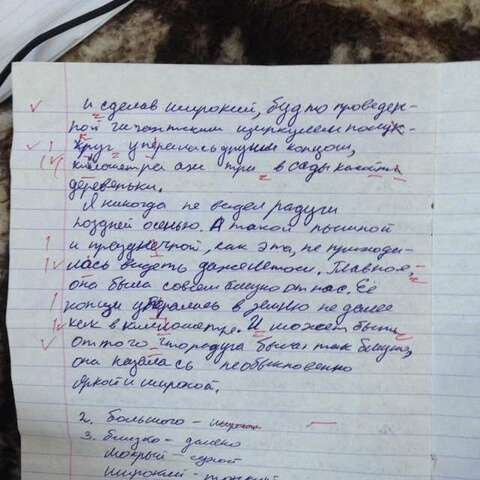 и сделав широкий, будто проведен-
ной гигантским циркулем полук-
круг уперлась другим концом,
километра аж три в сады какой-то
деревеньки.
Я никогда не видел радуги
поздней осенью. А такой пышной
и праздничной, как эта, не приходи-
лась видеть даже летом. Главное,
она была совсем близко от нас. Её
концы упирались в землю не далее
кек в километре. И может быть
оттого что радуга была так близко,
она казалась необыкновенно
яркой и широкой.
2. большого - широкого
3. близко - далеко
мокрый - сухой
широкий - тонкий